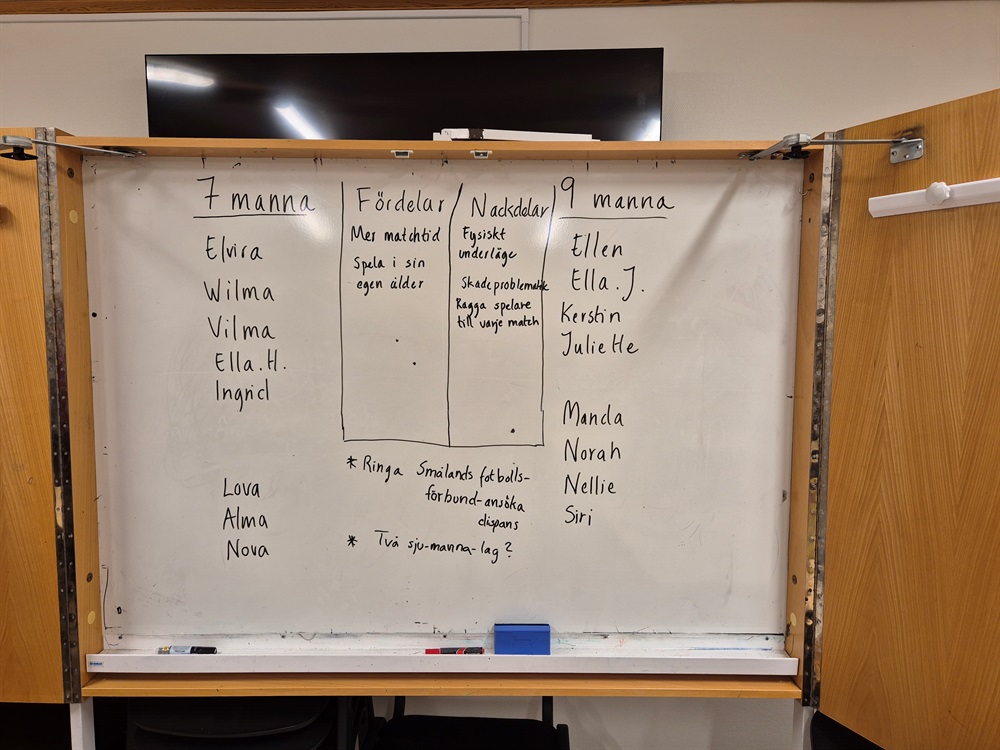 7 manna
Elvira
Wilma
Vilma
Ella.H.
Ingrid
Lova
Alma
Nova
Fördelar
Mer matchtid
Spela i sin
egen ålder
Nackdelar
Fysiskt
underläge
Skadeproblematik
Ragga spelare
till varje match
* Ringa Smålands fotbolls-
förbund-ansöka
dispans
* Två sju-manna-lag?
9 manna
Ellen
Ella.J.
Kerstin
Juliette
Manda
Norah
Nellie
Siri